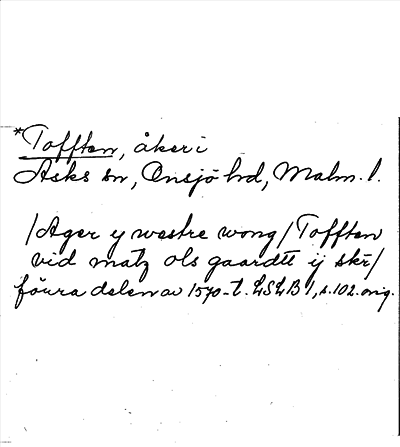 *Tofften, åker i
Asks sn, Onsjö hd, Malm. l.
/Ager y westre wong/Tofften
vid matz ols gaardtt ij skr/
förra delen av 1570-t. LSLB 1, s. 102. orig.